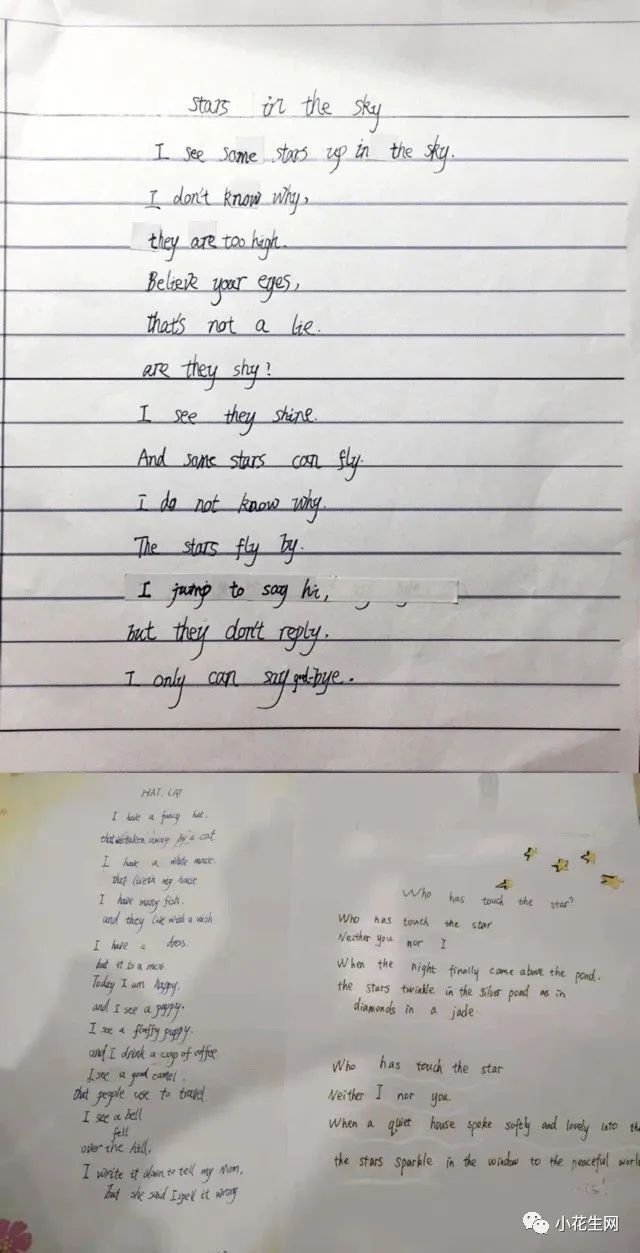 stars in the sky
I see some stars up in the sky.
I don't know why,
they are too high.
Believe your eyes,
that's not a lie.
are they shy?
I see they shine.
And some stars can fly.
I do not know why.
The stars fly by.
I jump to say hi,
but they don't reply.
I only can say good-bye.
HAT, CAT
I have a funny hat.
that was taken away by a cat
I have a white mouse
that live in my house
I have many fish.
and they live with a wish
I have a dress.
but it is a mess.
Today I am happy,
and I see a puppy.
I see a fluffy puppy.
and I drink a cup of coffee
I see a good camel,
that people use to travel
I see a bell
fell
over the hill,
I write it down to tell my Mom,
But she said I spell it wrong
Who has touch the star?
Who has touch the star
Neither you nor I
When the night finally came above the pond.
the stars twinkle in the silver pond as in
diamonds in a jade
Who has touch the star
Neither I nor you.
When a quiet house spoke softly and lovely into
the stars sparkle in the window to the peaceful
小花生网